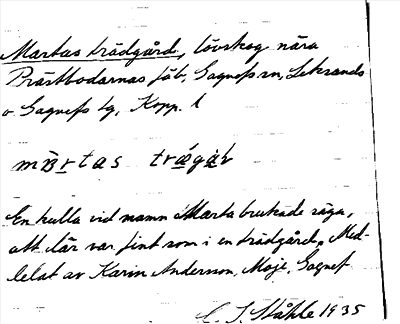 Martas trädgård, lövskog nära
Prästbodarnas fäb., Gagnefs sn, Leksands
o. Gagnefs tg, Kopp. l
trägår
En kulla vid namn Marta brukade säga,
att där var fint som i en trädgård. Med-
delat av Karin Andersson, Moje, Gagnef
Ståhle 1935